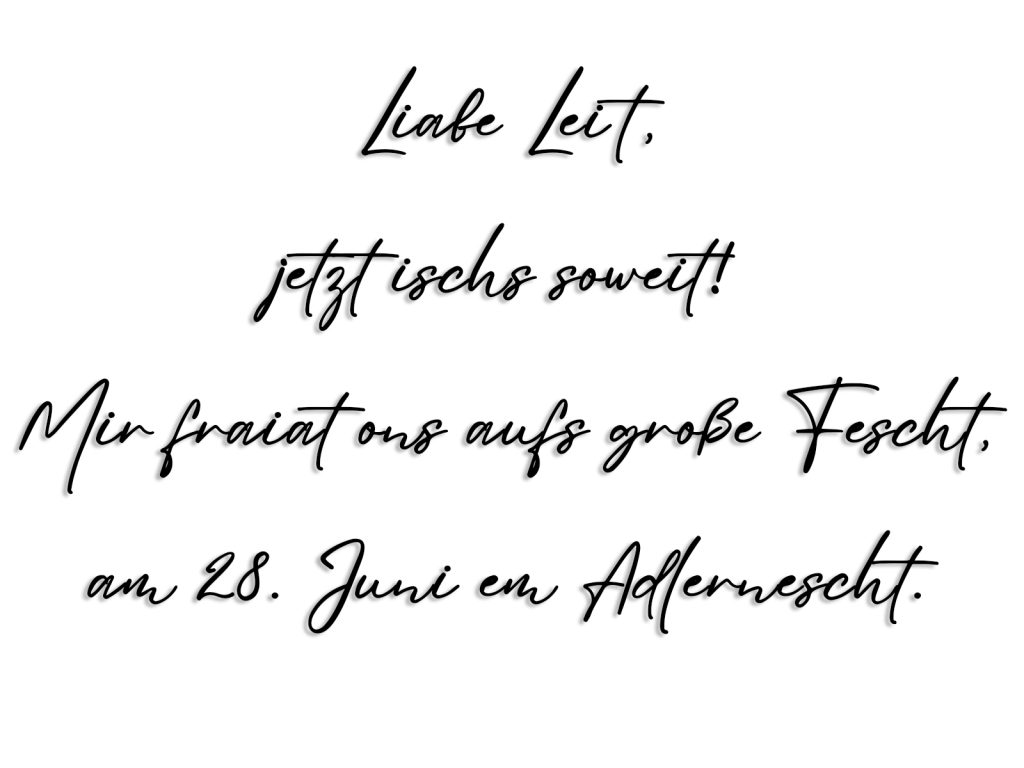 Liabe Leit,
jetzt ischs soweit!
Mir fraiat ons aufs große Fescht,
am 28. Juni em Adlernescht.